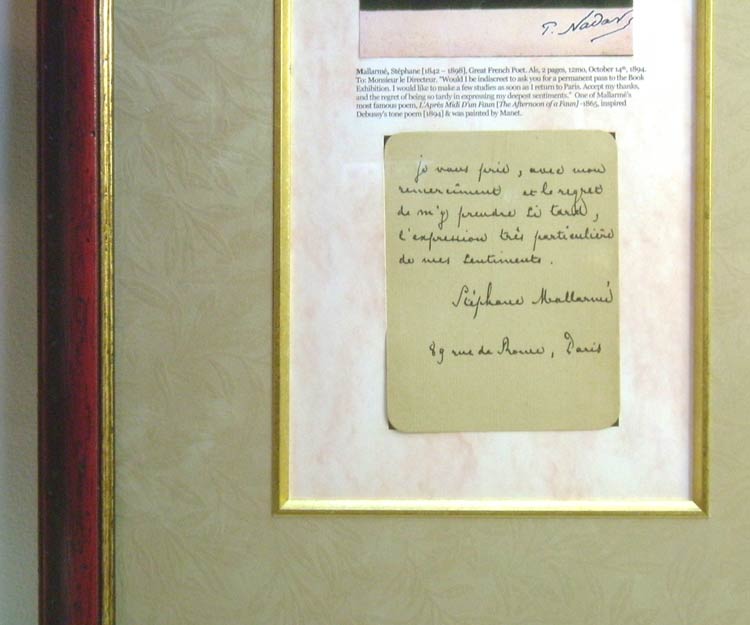 P. Nadar
Mallarmé, Stéphane [1842 – 1898], Great French Poet. Als, 2 pages, 12mo, October 14th, 1894.
To: Monsieur le Directeur. "Would I be indiscreet to ask you for a permanent pass to the Book
Exhibition. I would like to make a few studies as soon as I return to Paris. Accept my thanks,
and the regret of being so tardy in expressing my deepest sentiments." One of Mallarmé's
most famous poem, L'Après Midi D'un Faun [The Afternoon of a Faun] -1865, inspired
Debussy's tone poem [1894] & was painted by Manet.
je vous prie, avec mon
remercîment et le regret
de m'y prendre si tard,
l'expression très particulière
de mes sentiments.
Stéphane Mallarmé
89 rue de Rome, Paris